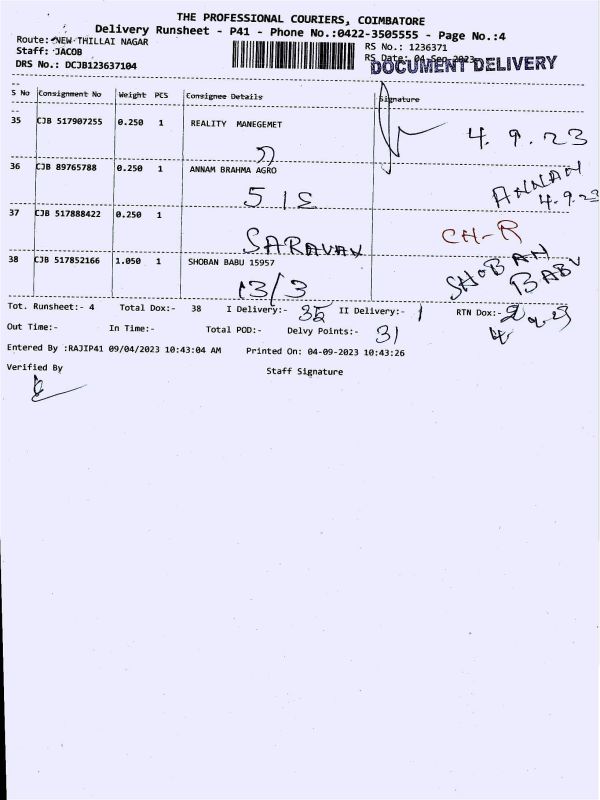 THE PROFESSIONAL COURIERS, COIMBATORE
Delivery Runsheet - P41 - Phone No.:0422-3505555 - Page No.:4
Route: NEW THILLAI NAGAR
RS No.: 1236371
Staff: JACOB
RS Date: 04 Sep 2023
DOCUMENT DELIVERY
DRS No.: DCJB123637104
S No Consignment No Weight PCS Consignee Details Signature
35 CJB 517907255 0.250 1 REALITY MANEGEMET
4. 9. 23
36 CJB 89765788 0.250 1 ANNAM BRAHMA AGRO
ANNAM
4.9.23
37 CJB 517888422 0.250 1
SARAVAN
CH-R
38 CJB 517852166 1.050 1 SHOBAN BABU 15957
13/3
SHOBAN
BABU
Tot. Runsheet:- 4 Total Dox:- 38 I Delivery:- 35 II Delivery:- 1 RTN Dox:- 2
Out Time:- In Time:- Total POD:- Delvy Points:- 31
4.9.23
Entered By :RAJIP41 09/04/2023 10:43:04 AM Printed On: 04-09-2023 10:43:26
Verified By
Staff Signature